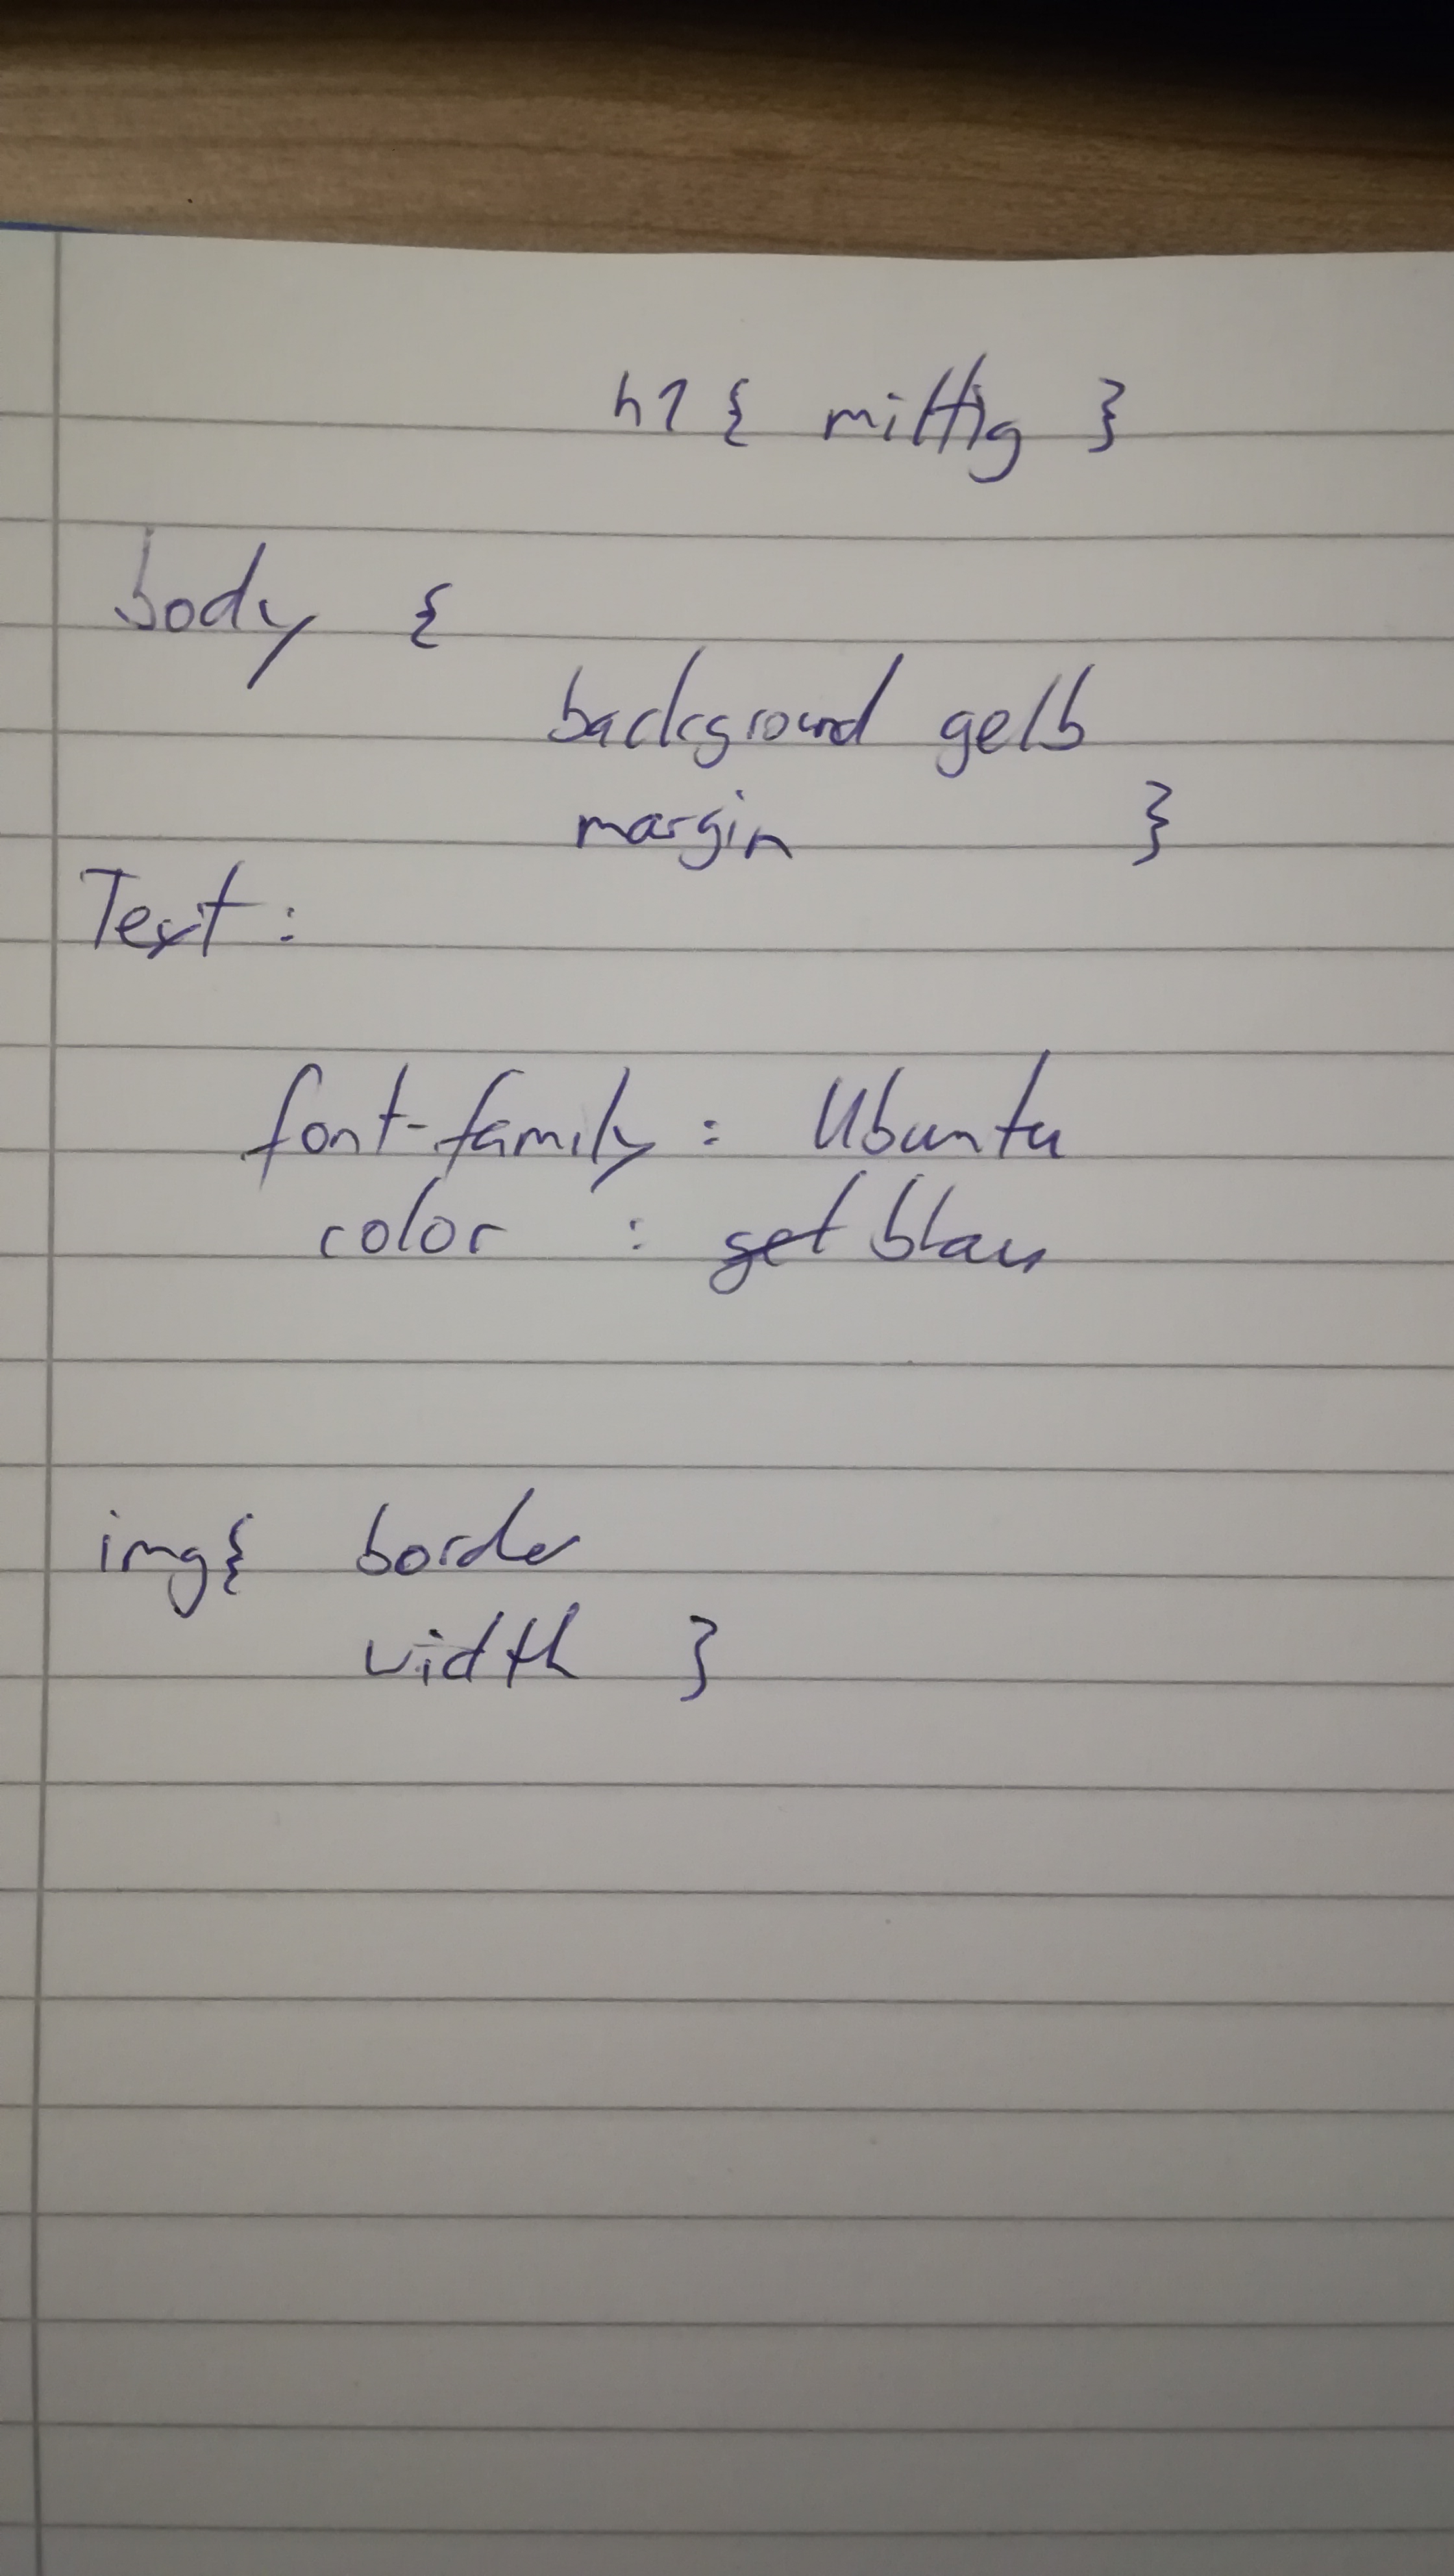 h1 { mittig }
body {
background gelb
margin }
Text:
font-family: Ubuntu
color : blau
img{ border
width }